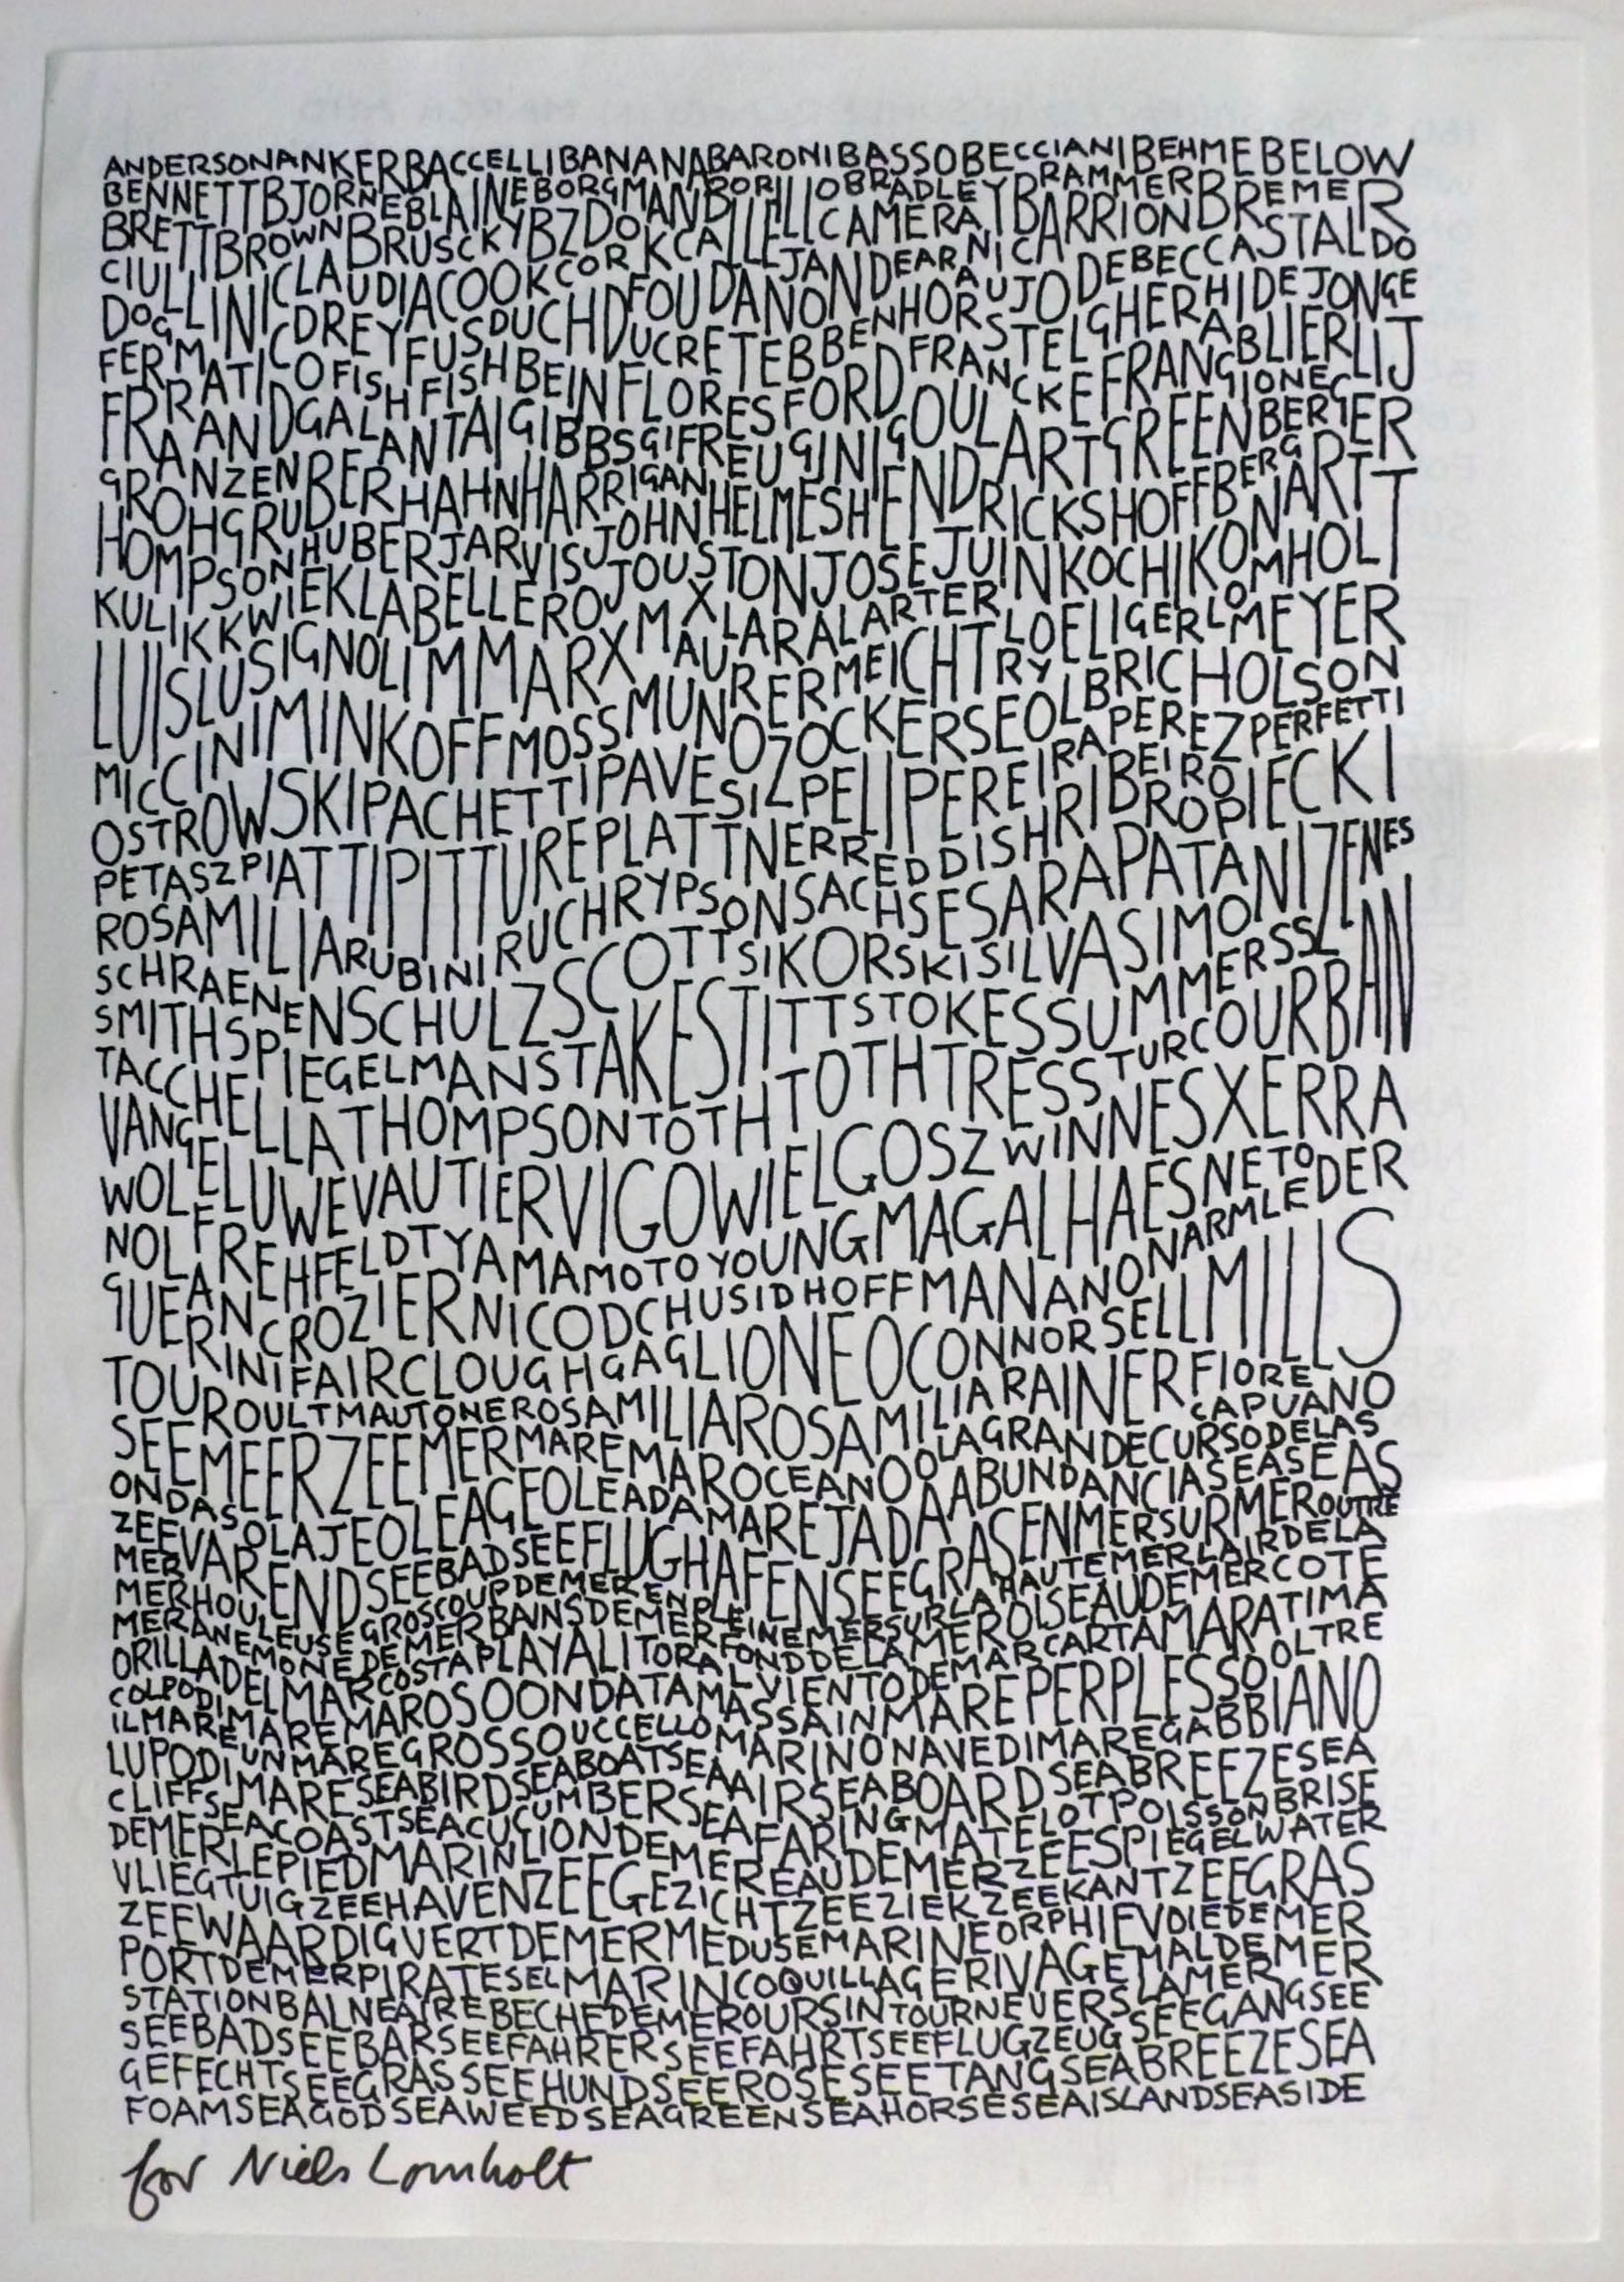 ANDERSONANKERBACCELLIBANANABARONIBASSOBECCIANIBEHMEBELOW
BENNETTBJORNEBLAINEBORGMANBORILLOBRADLEYBRAMMERBREMER
BRETTBROWNBRUSCKYBZDOKCAILLELLICAMERAYBARRIONCASTALDO
CIULLINICLAUDIACOOKCORKCALLEJANDEARNICARAUJODEBECCA
DOGLINICDREYFUSDUCHDUCRETEBBENHORSTELGHERHIDEJONGE
FERMATICOFISHFISHBEINFLORESFORDFRANCKEFRANGIONEGABLIERLIJ
FERRANDGALANTAIGIBBSGIFREUGINIGOULARTGREENBERGER
GROHGRUBERHAHNHARRIGANHELMESHENDRICKSHOFFBERGNARTT
HOMPSONHUBERJARVISJOHNJOUSTONJOSEJUINKOCHIKONOMHOLT
KULIKKWIEKLABELLEROJOMXLARALARTERLOELIGERLOMEYER
LUISLUSIGNOLIMMARXMAURERMEICHTRYOLBRICHOLSON
MICCINIMINKOFFMOSSMUNOZOCKERSEOLAPEREZPERFETTI
OSTROWSKIPACHETTIPAVESIZPELIPEREIRARIBEIROPIECKI
PETASZPIATTIPITTUREPLATTNERREDDISHRIBROPATANIZENES
ROSAMILIARUBINIRUCHRYPSONSACHSESARASIMON
SCHRAENENSCHULZSCOTTSIKORSKISILVASUMMERSSLAN
SMITHSPIEGELMANSTAKESTITTSTOKESSUMMERSTURCOURBAN
TACCHELLATHOMPSONTOTHTOTHTRESSTURCOURBAN
VANGELUWEVAUTIERVIGOWIELGOSZWINNESXERRA
WOLFREHFELDTYAMAMOTOYOUNGMAGALHAESNETO
NOLANCROZIERNICODCHUSIDHOFFMANANONARMLEDER
GUERRINIFAIRCLOUGHGAGLIONEOCONNORSELLMILLS
TOUROULTMAUTONEROSAMILIAROSAMILIARAINERFIORECAPUANO
SEEMEERZEEMERMAREMAROCEANOOLAGRANDECURSODELAS
ONDASOLAJEOLEAGEOLEADAMAREJADAABUNDANCIASEASEAS
ZEEVARENDSEEBADSEEFLUGHAFENSEEGRASENMERSURMEROUTRE
MERHOULEUSEGROSCOUPDEMERENPLEINEMERSURLAHAUTEMERLAIRDELA
MERANEMONEDEMERBAINSDEMERFONDDELAMEROISEAUDEMERCOTE
ORILLADELMARCOSTAPLAYALITORALVIENTODEMARCARTAMARATIMA
COLPODIMAREMAROSOONDATAMASSAINMAREPERPLESSOOLTRE
ILMAREUNMAREGROSSOUCCELLOMARINONAVEDIMAREGABBIANO
LUPODIMARESEABIRDSEABOATSEAAIRSEABOARDSEABREEZESEA
CLIFFSEACOASTSEACUCUMBERSEAFARINGMATELOTPOISSONBRISE
DEMERLEPIEDMARINLIONDEMEREAUDEMERZEESPIEGELWATER
VLIEGTUIGZEEHAVENZEEGEZICHTZEEZIEKZEEKANTZEEGRAS
ZEEWAARDIGVERTDEMERMEDUSEMARINEORPHIEVOIEDEMER
PORTDEMERPIRATESELMARINCOQUILLAGERIVAGEMALDEMER
STATIONBALNEAIREBECHEDEMEROURSINTOURNEVERSLAMER
SEEBADSEEBARSEEFAHRERSEEFAHRTSEEFLUGZEUGSEEGANGSEE
GEFECHTSEEGRASSEEHUNDSEEROSESEETANGSEABREEZESEA
FOAMSEAGODSEAWEEDSEAGREENSEAHORSESEAISLANDSEASIDE
for Niels Lomholt